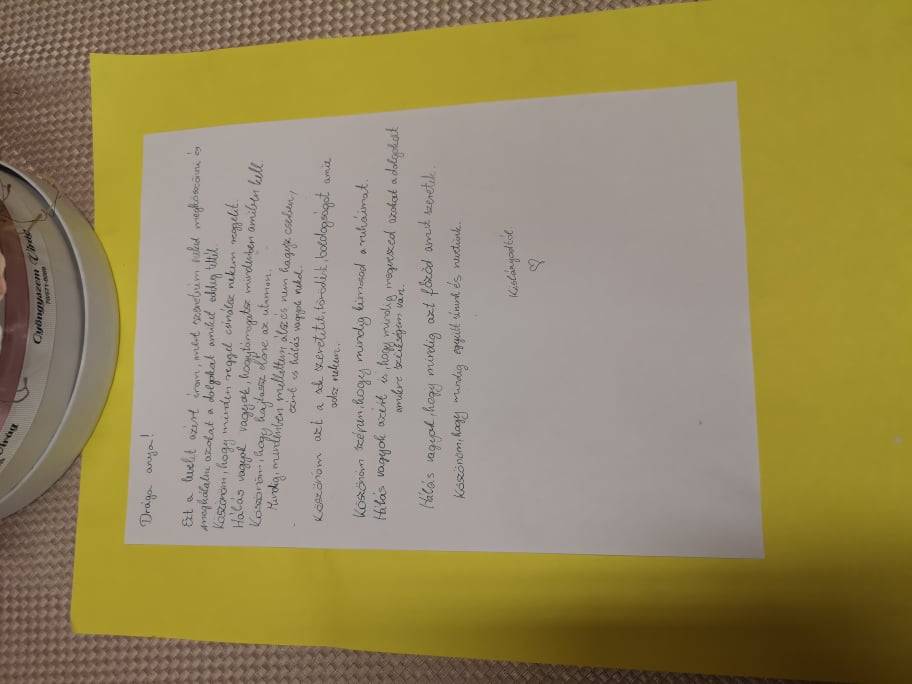 Drága anya!
Ezt a levelet azért írom, mert szeretném neked megköszönni és
meghálálni azokat a dolgokat amiket eddig tettél.
Köszönöm, hogy minden reggel csinálsz nekem reggelit.
Hálás vagyok vagyok, hogy támogatsz mindenben amiben kell
Köszönöm, hogy hajtasz előre az utamon.
Mindig, mindenben mellettem állsz és nem hagysz cserben,
ezért is hálás vagyok neked.
Köszönöm azt a sok szeretetet, törődést, boldogságot amit
adsz nekem.
Köszönöm szépen, hogy mindig kimosod a ruháimat.
Hálás vagyok azért is, hogy mindig megveszed azokat a dolgokat
amikre szükségem van.
Hálás vagyok, hogy mindig azt főzöd amit szeretek.
Köszönöm, hogy mindig együtt sírunk és nevetünk.
Kislányodtól.
♡
Gyöngyszem Virág
70/571-8089
Virág